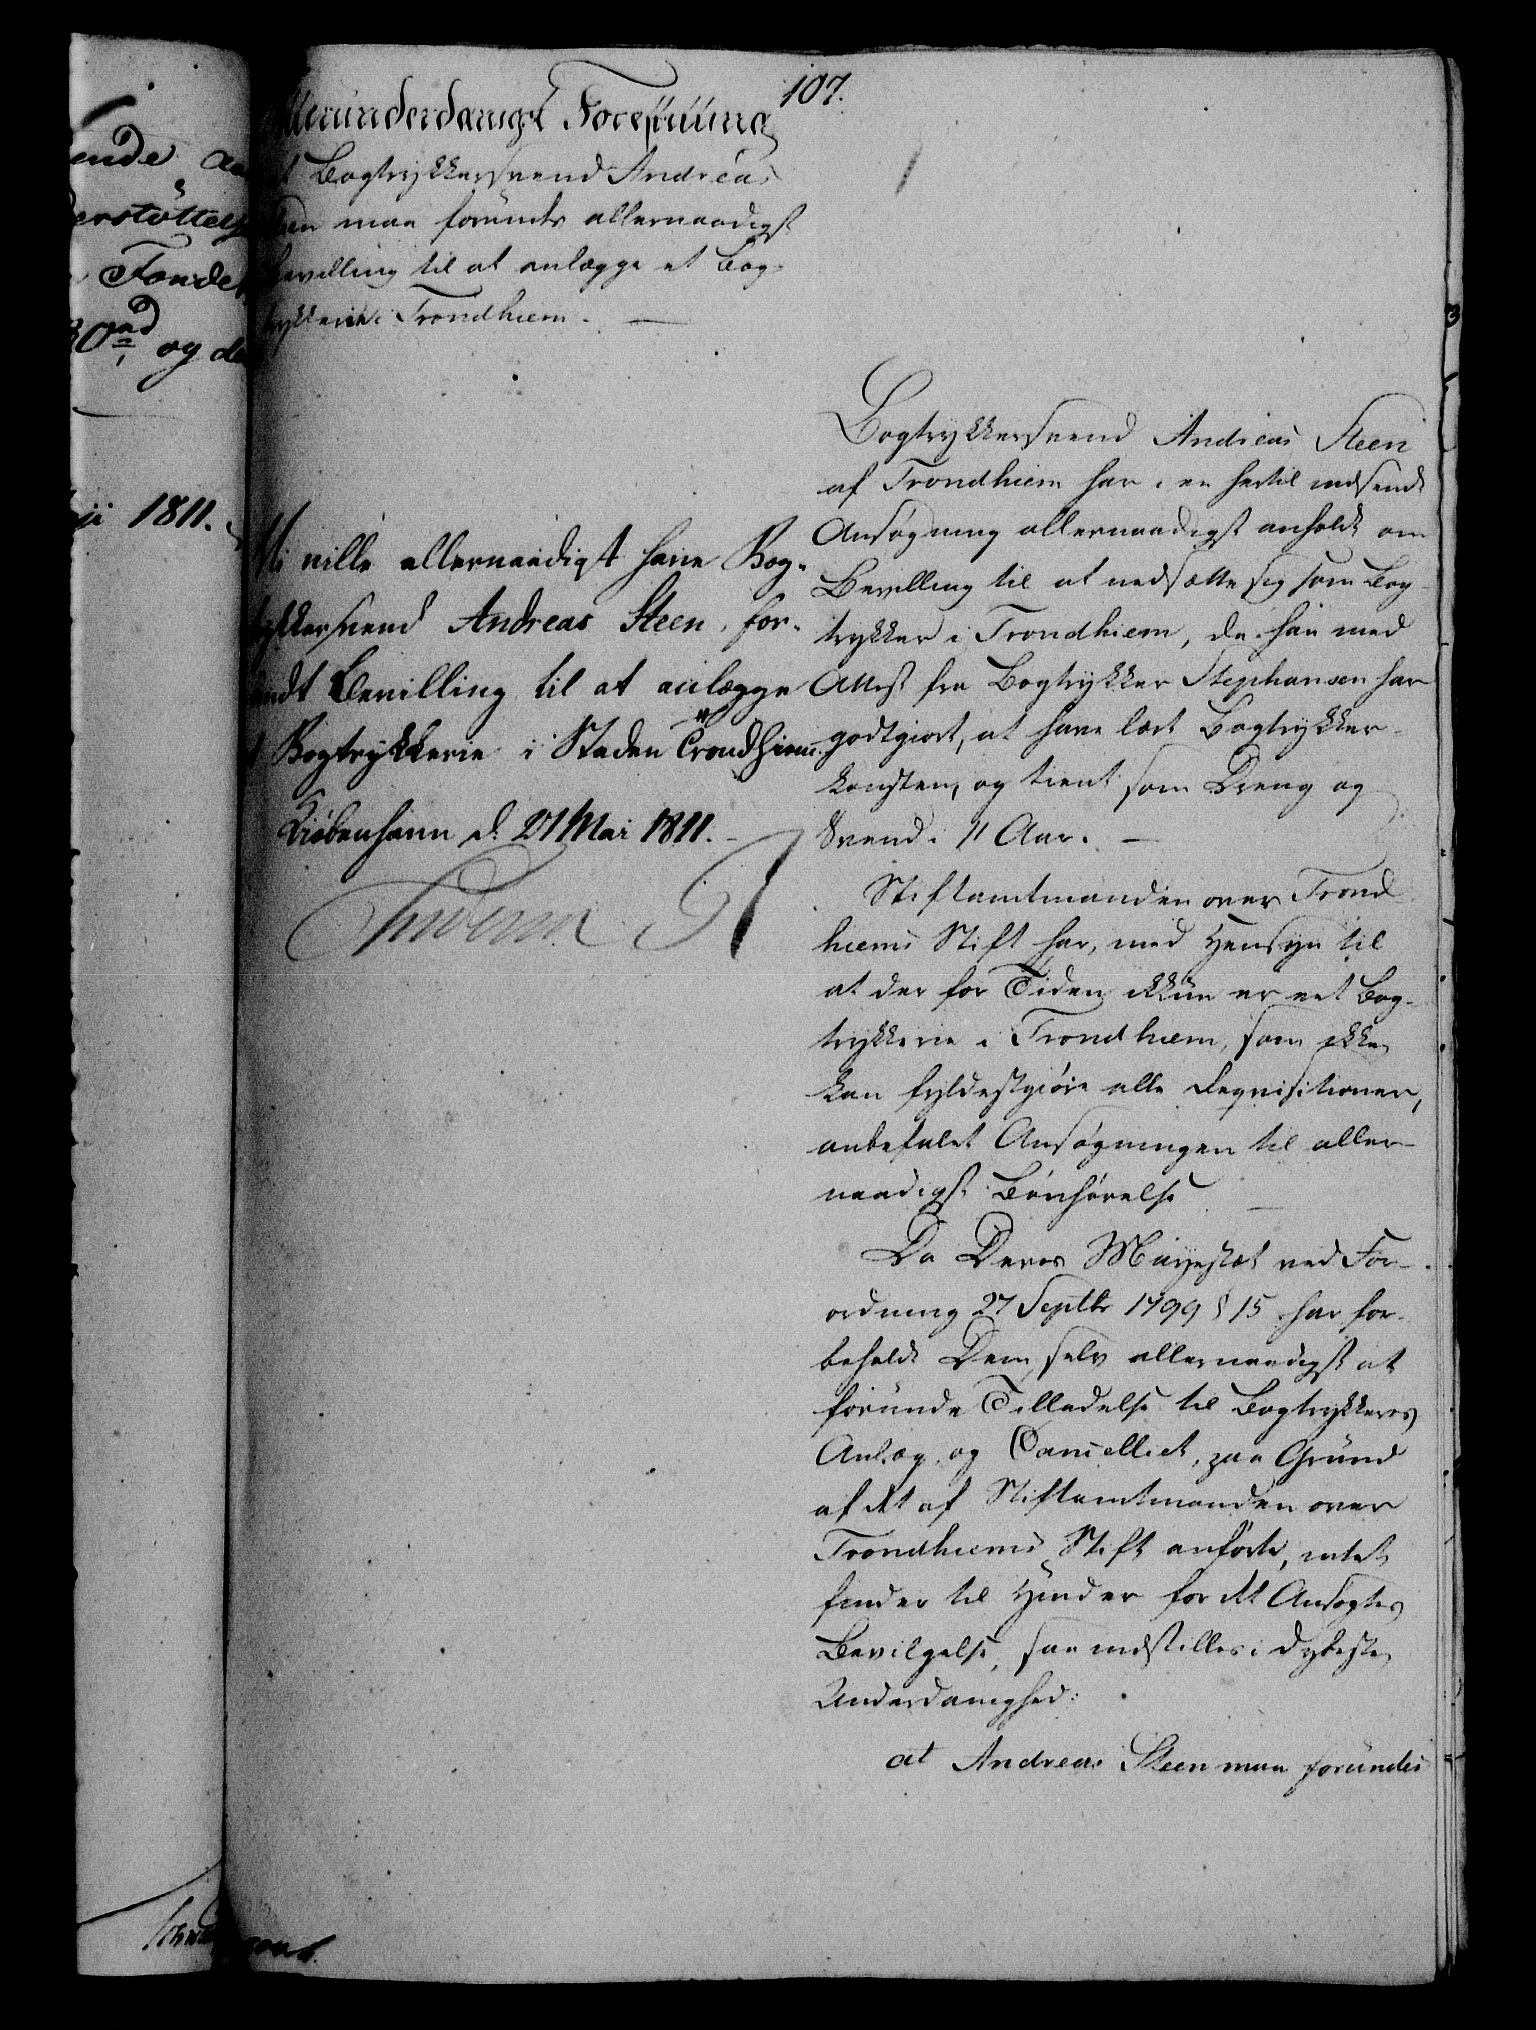 107.
Allerunderdanigst Forestilling
at Bogtrykkersvend Andreas
Steen maa forundes allernaadigst
Bevilling til at anlægge et Bog-
trykkerie i Trondhiem. —
Vi ville allernaadigst have Bog-
trykkersvend Andreas Steen, for-
undt Bevilling til at anlægge
et Bogtrykkerie i Staden Trondhiem.
Kiøbenhavn d. 21 Mai 1811. -
Frederik R
Bogtrykkersvend Andreas Steen
af Trondhiem har i en hertil indsendt
Ansøgning allernaadigst anholdt om
Bevilling til at nedsætte sig som Bog-
trykker i Trondhiem, da han med
Attest fra Bogtrykker Stephansen har
godtgiort, at have lært Bogtrykker-
konsten, og tient som Dreng og
Svend i 11 Aar. —
Stiftamtmanden over Trond-
hiems Stift har, med Hensyn til
at der for Tiden ikkun er eet Bog-
trykkerie i Trondhiem, som ikke
kan fyldestgiøre alle Reqvisitioner,
anbefalet Ansøgningen til aller-
naadigst Bønhørelse —
Da Deres Majestæt ved For-
ordning 27 Septbr 1799 § 15 har for-
beholdt Dem selv allernaadigst at
forunde Tilladelse til Bogtrykkeries
Anlæg, og Cancelliet, paa Grund
af det af Stiftamtmanden over
Trondhiems Stift anførte, intet
finder til Hinder for det Ansøgtes
Bevilgelse, saa indstilles i dybeste
Underdanighed:
at Andreas Steen maa forundes
ende
Fonde
og de
1811.